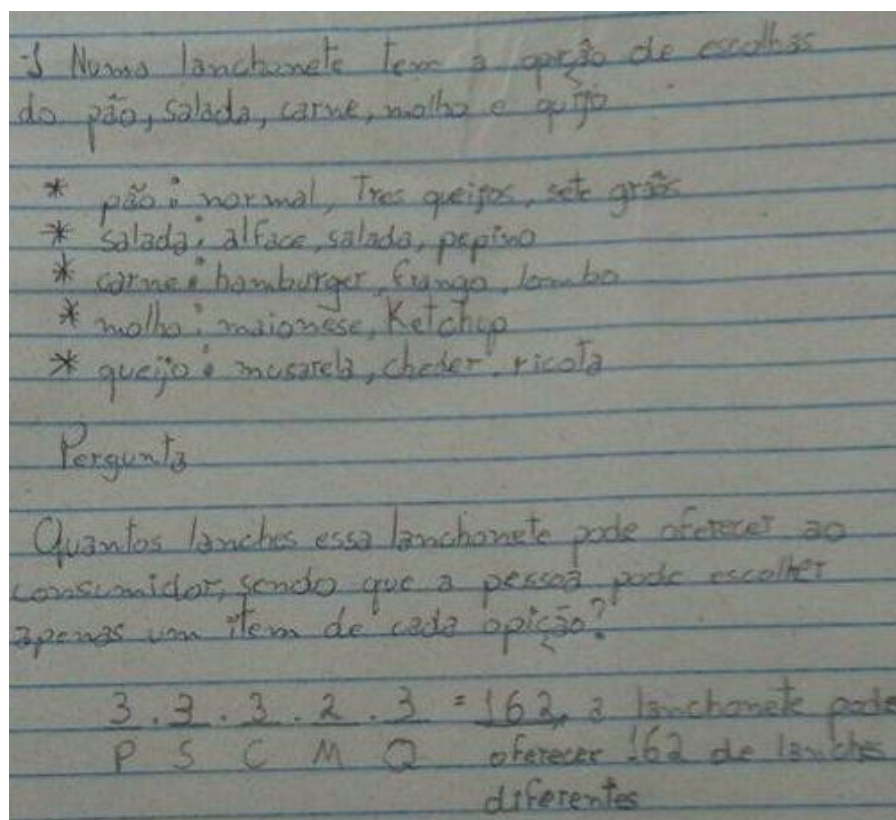 -1 Numa lanchonete tem a opção de escolhas
do pão, salada, carne, molho e quijo
* pão: normal, Tres queijos, sete grãos
* salada: alface, salada, pepino
* carne: hamburger, frango, lombo
* molho: maionese, Ketchup
* queijo: musarela, cheder, ricota
Pergunta
Quantos lanches essa lanchonete pode oferecer ao
consumidor, sendo que a pessoa pode escolher
apenas um item de cada opição?
3 . 3 . 3 . 2 . 3 = 162, a lanchonete pode
P S C M Q oferecer 162 de lanches
diferentes